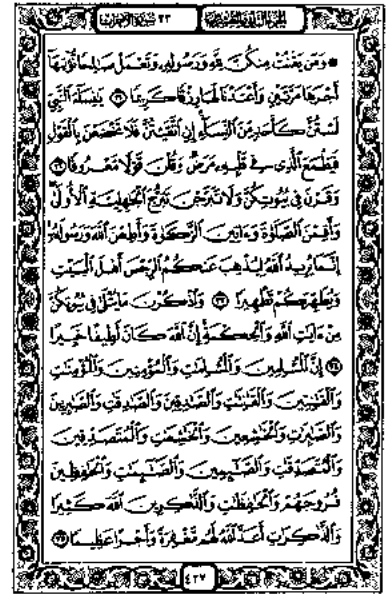 الجزء الثاني والعشرون
٣٣ سورة الأحزاب
۞ وَمَن يَقْنُتْ مِنكُنَّ لِلَّهِ وَرَسُولِهِ وَتَعْمَلْ صَٰلِحًا نُّؤْتِهَآ
أَجْرَهَا مَرَّتَيْنِ وَأَعْتَدْنَا لَهَا رِزْقًا كَرِيمًا ٣١ يَٰنِسَآءَ ٱلنَّبِيِّ
لَسْتُنَّ كَأَحَدٍ مِّنَ ٱلنِّسَآءِ إِنِ ٱتَّقَيْتُنَّ فَلَا تَخْضَعْنَ بِٱلْقَوْلِ
فَيَطْمَعَ ٱلَّذِى فِى قَلْبِهِ مَرَضٌ وَقُلْنَ قَوْلًا مَّعْرُوفًا ٣٢
وَقَرْنَ فِى بُيُوتِكُنَّ وَلَا تَبَرَّجْنَ تَبَرُّجَ ٱلْجَٰهِلِيَّةِ ٱلْأُولَىٰ
وَأَقِمْنَ ٱلصَّلَوٰةَ وَءَاتِينَ ٱلزَّكَوٰةَ وَأَطِعْنَ ٱللَّهَ وَرَسُولَهُۥٓ
إِنَّمَا يُرِيدُ ٱللَّهُ لِيُذْهِبَ عَنكُمُ ٱلرِّجْسَ أَهْلَ ٱلْبَيْتِ
وَيُطَهِّرَكُمْ تَطْهِيرًا ٣٣ وَٱذْكُرْنَ مَا يُتْلَىٰ فِى بُيُوتِكُنَّ
مِنْ ءَايَٰتِ ٱللَّهِ وَٱلْحِكْمَةِ إِنَّ ٱللَّهَ كَانَ لَطِيفًا خَبِيرًا
٣٤ إِنَّ ٱلْمُسْلِمِينَ وَٱلْمُسْلِمَٰتِ وَٱلْمُؤْمِنِينَ وَٱلْمُؤْمِنَٰتِ
وَٱلْقَٰنِتِينَ وَٱلْقَٰنِتَٰتِ وَٱلصَّٰدِقِينَ وَٱلصَّٰدِقَٰتِ وَٱلصَّٰبِرِينَ
وَٱلصَّٰبِرَٰتِ وَٱلْخَٰشِعِينَ وَٱلْخَٰشِعَٰتِ وَٱلْمُتَصَدِّقِينَ
وَٱلْمُتَصَدِّقَٰتِ وَٱلصَّٰٓئِمِينَ وَٱلصَّٰٓئِمَٰتِ وَٱلْحَٰفِظِينَ
فُرُوجَهُمْ وَٱلْحَٰفِظَٰتِ وَٱلذَّٰكِرِينَ ٱللَّهَ كَثِيرًا
وَٱلذَّٰكِرَٰتِ أَعَدَّ ٱللَّهُ لَهُم مَّغْفِرَةً وَأَجْرًا عَظِيمًا ٣٥
٤٣٧